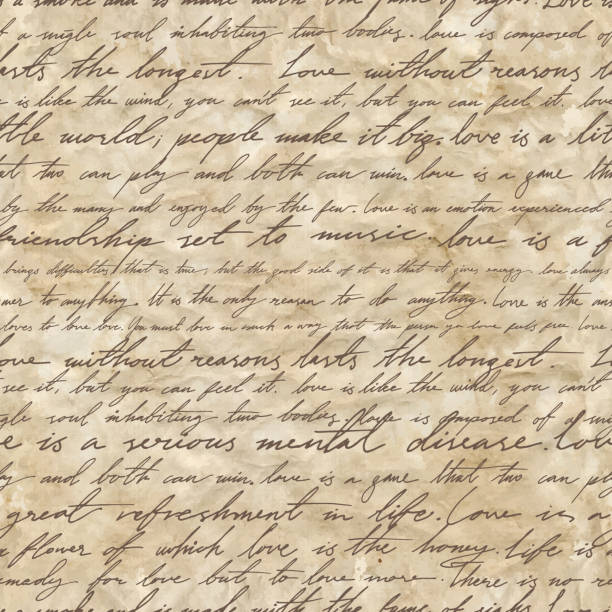 a smoke and is made with the fume of sighs. Love is
a single soul inhabiting two bodies. love is composed of
lasts the longest. Love without reasons l
is like the wind, you can't see it, but you can feel it. love
little world; people make it big. love is a lit
at two can play and both can win. love is a game tha
by the many and enjoyed by the few. Love is an emotion experienced
friendship set to music. love is a f
brings difficulties, that is true, but the good side of it is that it gives energy. love always
wer to anything. It is the only reason to do anything. Love is the ans
loves to love love. You must love in such a way that the person you love feels free. Love
love without reasons lasts the longest. L
see it, but you can feel it. love is like the wind, you can't
single soul inhabiting two bodies. love is composed of a sin
e is a serious mental disease. Love
play and both can win. love is a game that two can play
great refreshment in life. Love is a
a flower of which love is the honey. life is
remedy for love but to love more. There is no re
a smoke and is made with the fume of sighs. Love